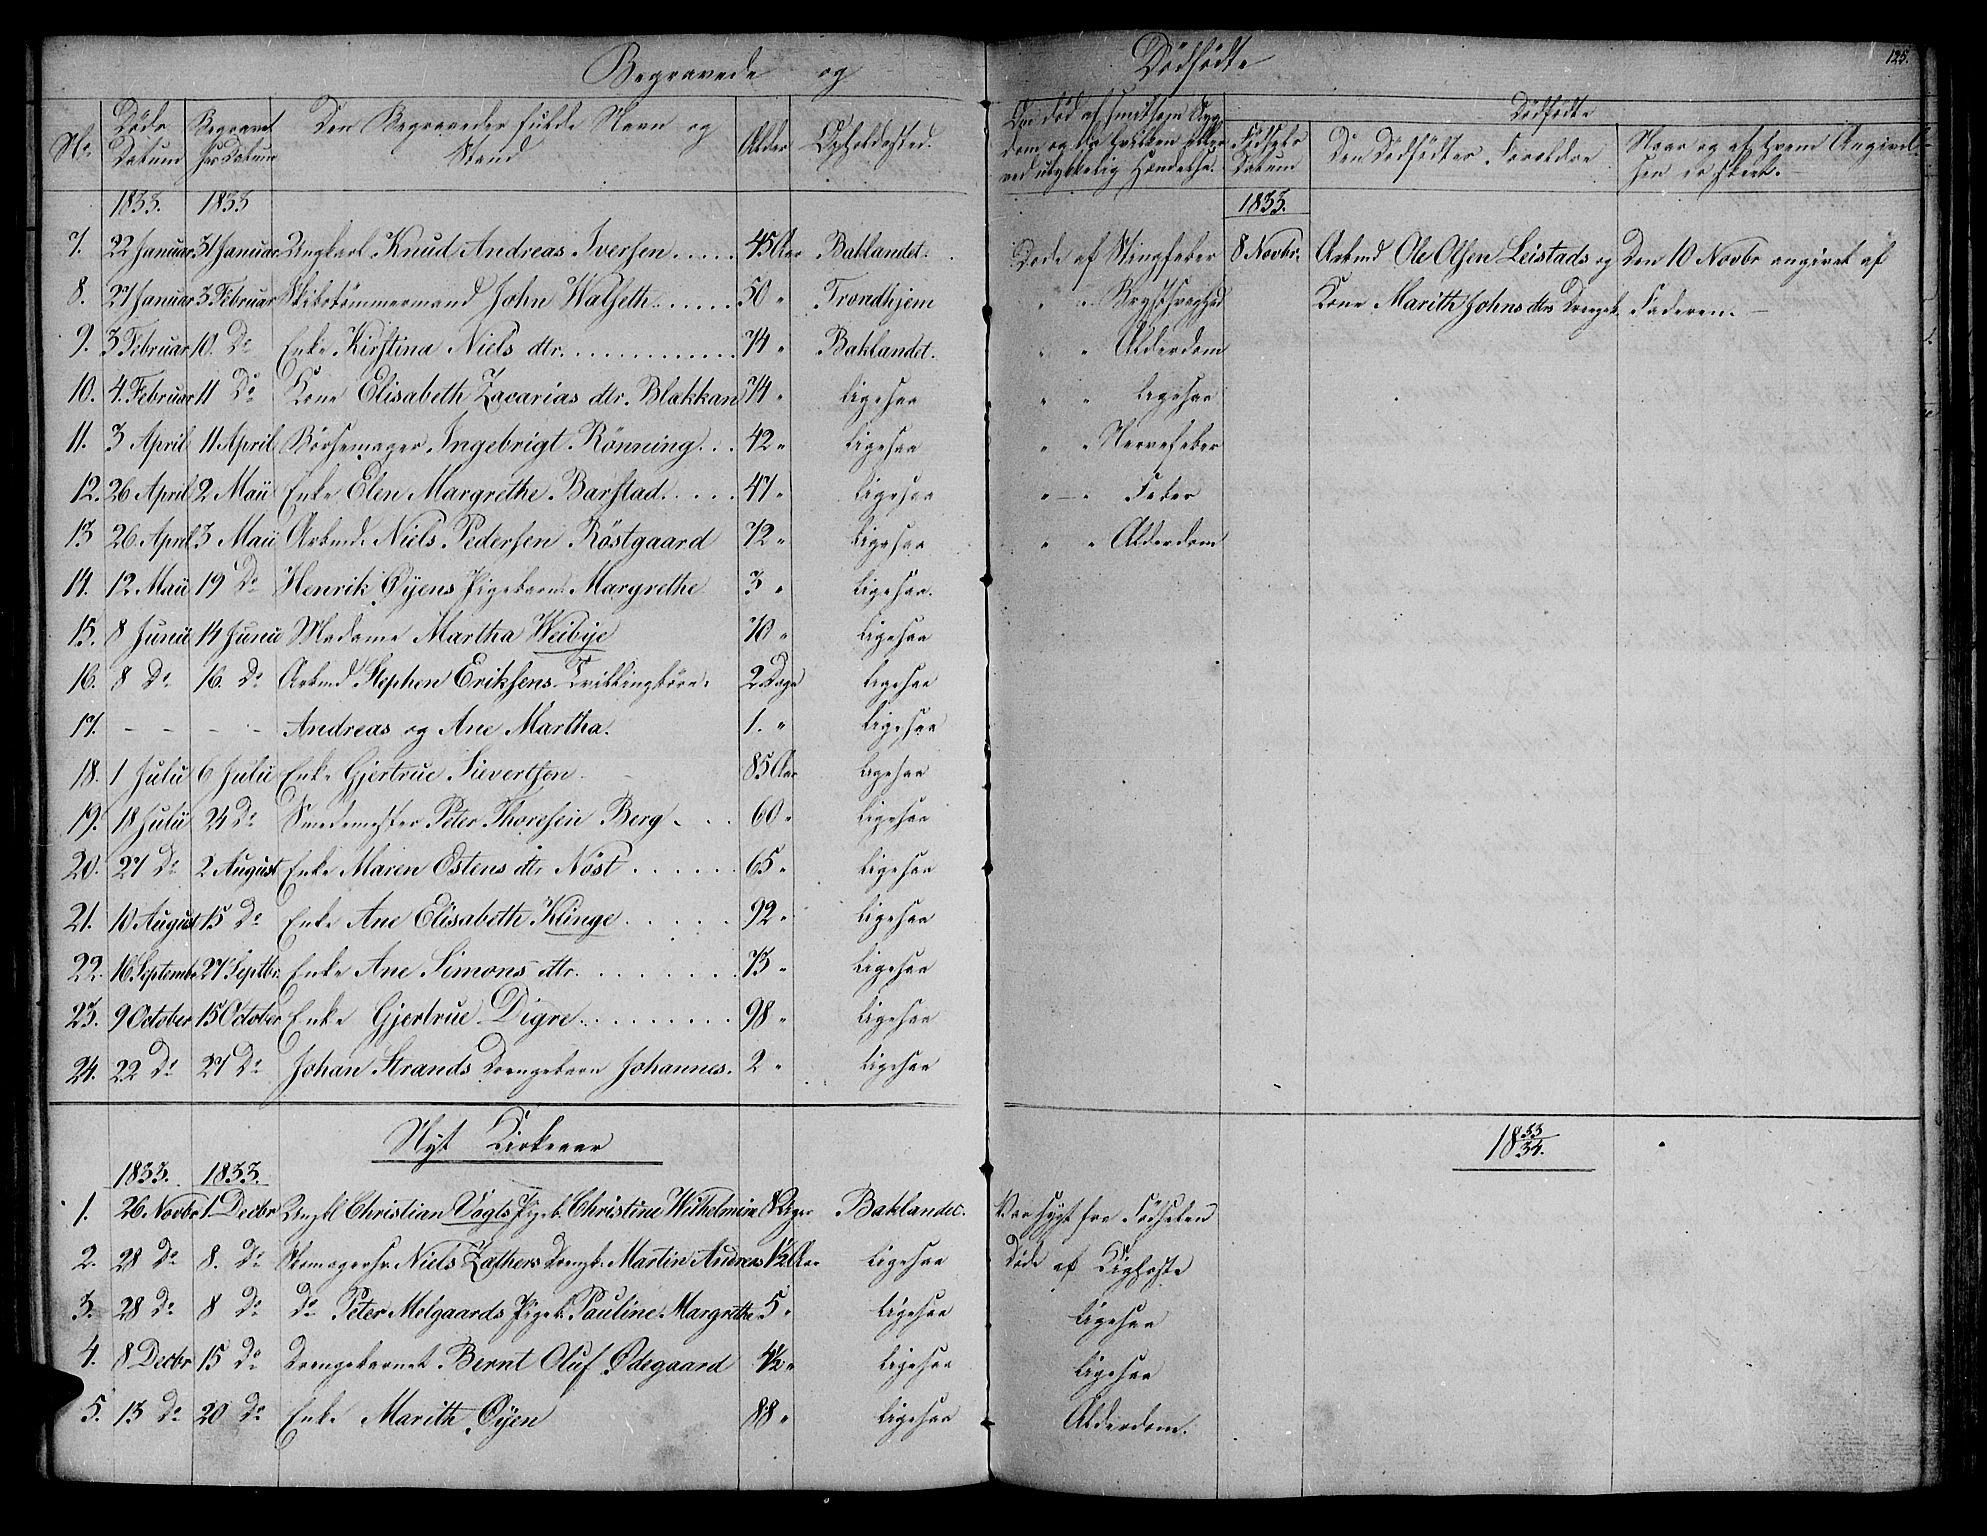 Begravede og Dödfödte 125.
No. Döds Datum Begravet Datum Den Begravedes fulde Navn og Stand Alder Opholdssted. Om död af smitsom Syg-
dom, og da hvilken eller ved ulykkelig Hændelse.
Dödfödte
Födsels Datum Den Dödfödtes Forældre Naar og af hvem Angivel-
sen er skeet.
1833. 1833 1833.
7. 22 Januar 31 Januar Ungkarl Knud Andreas Iversen..... 45 Aar Baklandet. Döde af Stingfeber 8 Novbr. Arbmd Ole Olsen Leistads og Den 10 Novbr angivet af
8. 27 Januar 3 Februar Skibstömmermand John Walseth...... 50 " Trondhjem " " Brystsvaghed Kone Marith Johns dtr Drengeb. Faderen.
9. 3 Februar 10. Do Enke Kirstina Niels dtr............. 74 " Baklandet. " " Alderdom
10. 4. Februar 11 Do Kone Elisabeth Zacarias dtr. Blakkan 74 " ligesaa " " ligesaa
11. 3 April 11 April Börsemager Ingebrigt Rönning... 42 " ligesaa " " Nervefeber
12. 26 April 2 Maii Enke Elen Margrethe Barstad..... 47 " ligesaa " " Feber
13 26 April 3 Maii Arbmd. Niels Pedersen Röstgaard 72 " ligesaa " " Alderdom
14. 12 Maii 19 Do Henrik Øyens Pigebarn Margrethe 3 " ligesaa.
15. 8 Junii 14 Junii Madame Martha Weibye 70 " ligesaa
16. 8 Do 16. Do Arbmd Stephen Eriksens Tvillingbörn. 2 Dage ligesaa
17. - - - - Andreas og Ane Martha. 1. " ligesaa
18. 1 Julii 6 Julii Enke Gjertrue Sievertsen 85 Aar ligesaa
19. 18 Julii 24 Do Smedemester Peter Thoresen Berg... 60 " ligesaa
20. 27 Do 2 August Enke Maren Ostens dtr Nöst...... 65 " ligesaa
21. 10 August 15 Do Enke Ane Elisabeth Klinge...... 92 " ligesaa
22. 16 Septembr 27 Septbr. Enke Ane Simons dtr......... 73 " ligesaa
23. 9 October 15 October Enke Gjertrue Digre.......... 98 " ligesaa
24. 22 Do 27 Do Johan Strands Drengebarn Johannes. 2 " ligesaa
Nyt Kirkeaar 18 33/34.
1833. 1833.
1. 26 Novbr 1 Decbr Ungkl Christian Vogts Pigeb. Christine Wilhelmine 8 Uger Baklandet. Var sygt fra Födselen
2. 28 Do 8. Do Niels Zathers Drengb. Martin Andreas 1½ Aar ligesaa Döde af Kighoste
3. 28 Do 8 Do Do Peter Melgaards Pigeb. Pauline Margrethe 5 " ligesaa ligesaa
4. 8 Decbr 15 Do Drengebarnet Bernt Oluf Ødegaard 4½ " ligesaa ligesaa
5. 13 Do 20 Do Enke Marith Øyen 88 " ligesaa Alderdom.